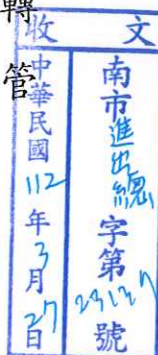 轉
管
收文
中華民國112年3月27日
南市進出總字第23137號